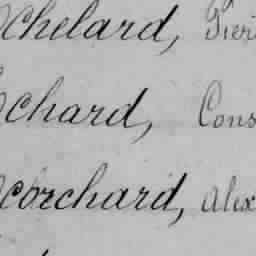 chelard,
chard, Cons
corchard, Alex